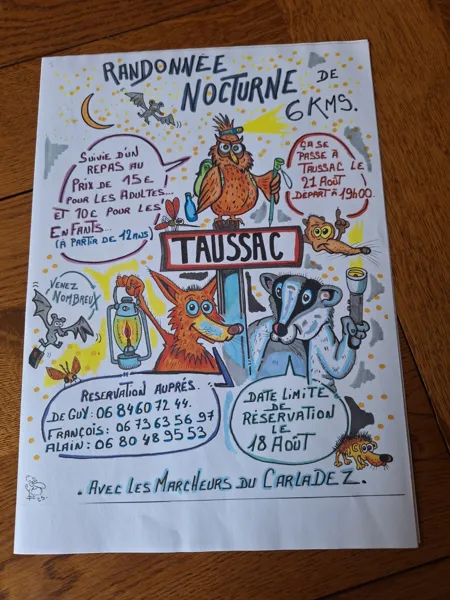 RANDONNÉE
NOCTURNE DE
6 KMS.
SUIVIE D'UN
REPAS AU
PRIX DE 15E
POUR LES ADULTES...
ET 10E POUR LES
ENFANTS...
(À PARTIR DE 12 ANS)
ÇA SE
PASSE À
TAUSSAC LE
21 AOÛT
DÉPART À 19H00.
TAUSSAC
VENEZ
NOMBREUX
RESERVATION AUPRÉS.
DE GUY: 06 84 60 72 44.
FRANÇOIS: 06 73 63 56 97
ALAIN: 06 80 48 95 53
DATE LIMITE
DE
RÉSERVATION
LE
18 AOÛT
. AVEC LES MARCHEURS DU CARLADEZ.